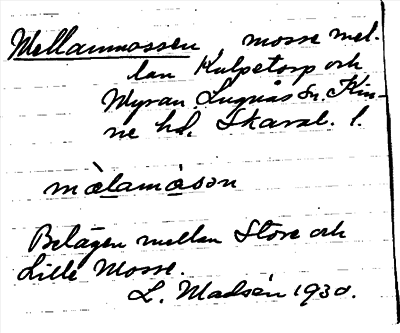 Mellanmossen, mosse mel-
lan Kulpetorp och
Myran. Lugnås sn. Kin-
ne hd, Skarab. l.
mɛ̀lamɑ̀sən
Belägen mellan Store och
Lille Mosse.
L. Madsén 1930.